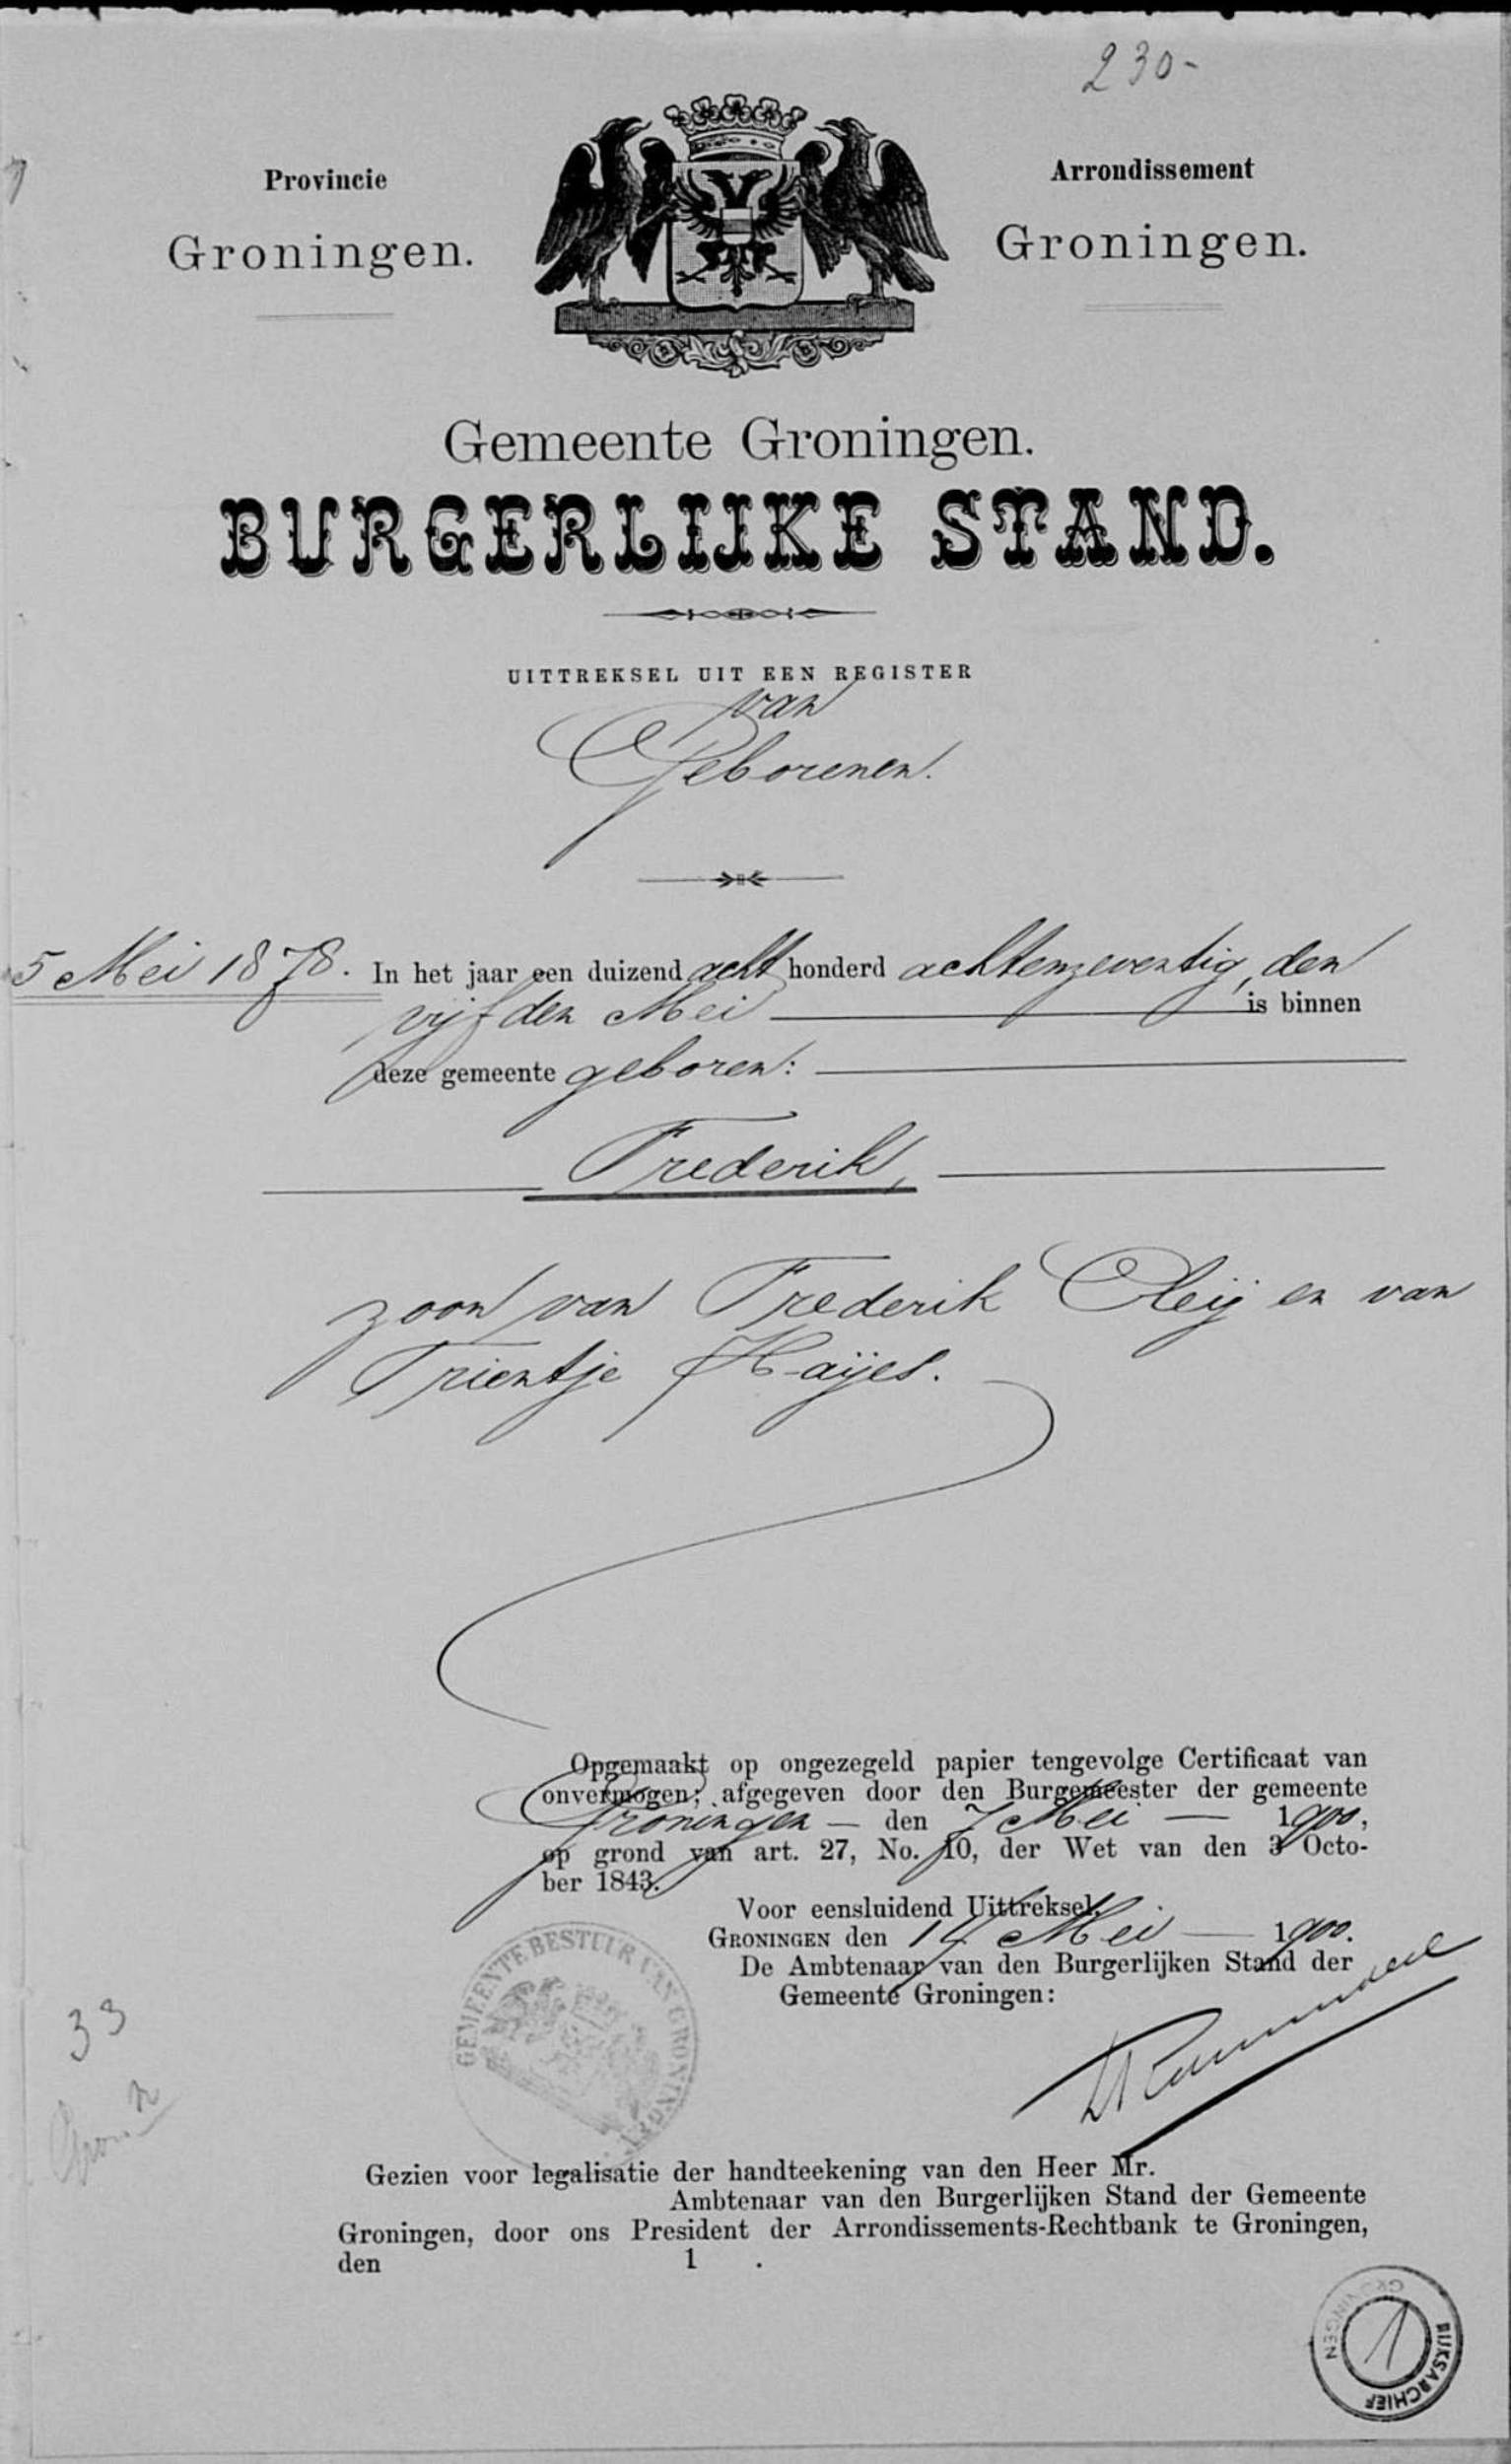 230-
Provincie
Groningen.
Arrondissement
Groningen.
Gemeente Groningen.
BURGERLIJKE STAND.
UITTREKSEL UIT EEN REGISTER
van
Geborenen.
5 Mei 1878. In het jaar een duizend acht honderd achtenzeventig, den
vijfden Mei is binnen
deze gemeente geboren:
Frederik,
zoon van Frederik Cleij en van
Trientje Haijes.
Opgemaakt op ongezegeld papier tengevolge Certificaat van
onvermogen; afgegeven door den Burgemeester der gemeente
Groningen — den 7 Mei — 1900,
op grond van art. 27, No. 10, der Wet van den 3 Octo-
ber 1843.
Voor eensluidend Uittreksel.
GRONINGEN den 14 Mei — 1900.
De Ambtenaar van den Burgerlijken Stand der
Gemeente Groningen:
GEMEENTE BESTUUR VAN GRONINGEN
33
Gezien voor legalisatie der handteekening van den Heer Mr.
Ambtenaar van den Burgerlijken Stand der Gemeente
Groningen, door ons President der Arrondissements-Rechtbank te Groningen,
den 1 .
RIJKSARCHIEF GRONINGEN
1